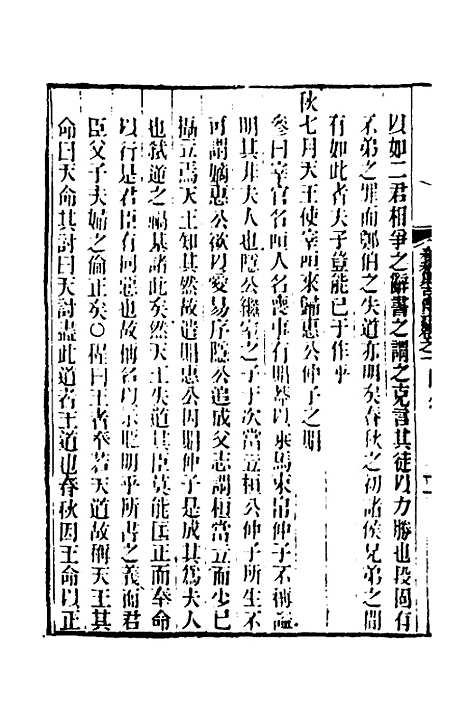 以如二君相爭之辭書之謂之克言其徒以力勝也段固有
不弟之罪而鄭伯之失道亦明矣春秋之初諸侯兄弟之間
有如此者夫子豈能已于作乎
秋七月天王使宰咺來歸惠公仲子之賵
參曰宰官名咺人名喪事有賵蓋以乘馬束帛仲子不稱諡
明其非夫人也隱公繼室之子于次當立桓公仲子所生不
可謂嫡惠公欲以愛易序隱公追成父志謂桓當立而少已
攝立焉天王知其然故遣賵惠公因賵仲子是成其為夫人
也弑逆之禍基諸此矣然天王失道其臣莫能匡正而奉命
以行是君臣有同惡也故傳名以示貶明乎所書之義而君
臣父子夫婦之倫正矣○程曰王者奉若天道故稱天王其
命曰天命其討曰天討盡此道者王道也春秋因王命以正